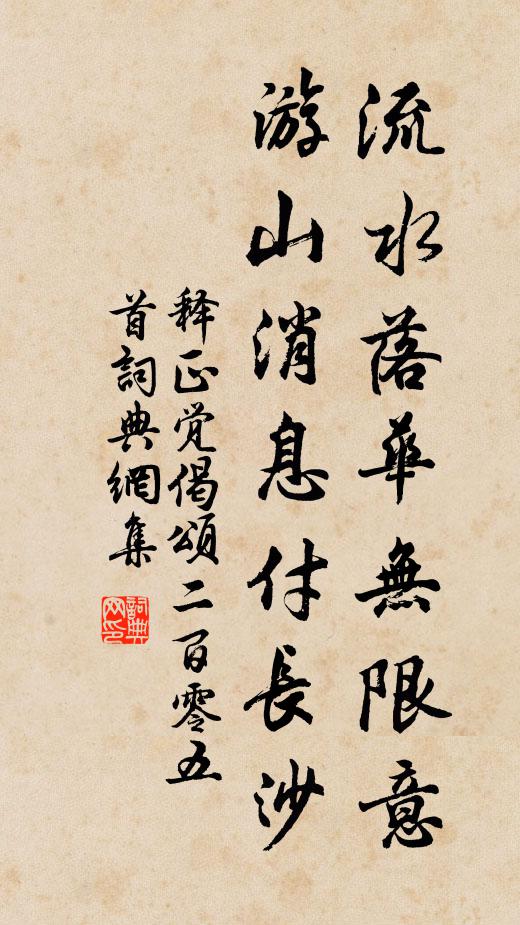 流水落華無限意
游山消息付長沙
释正觉偈頌二百零五
首詞典網集
詞典网印